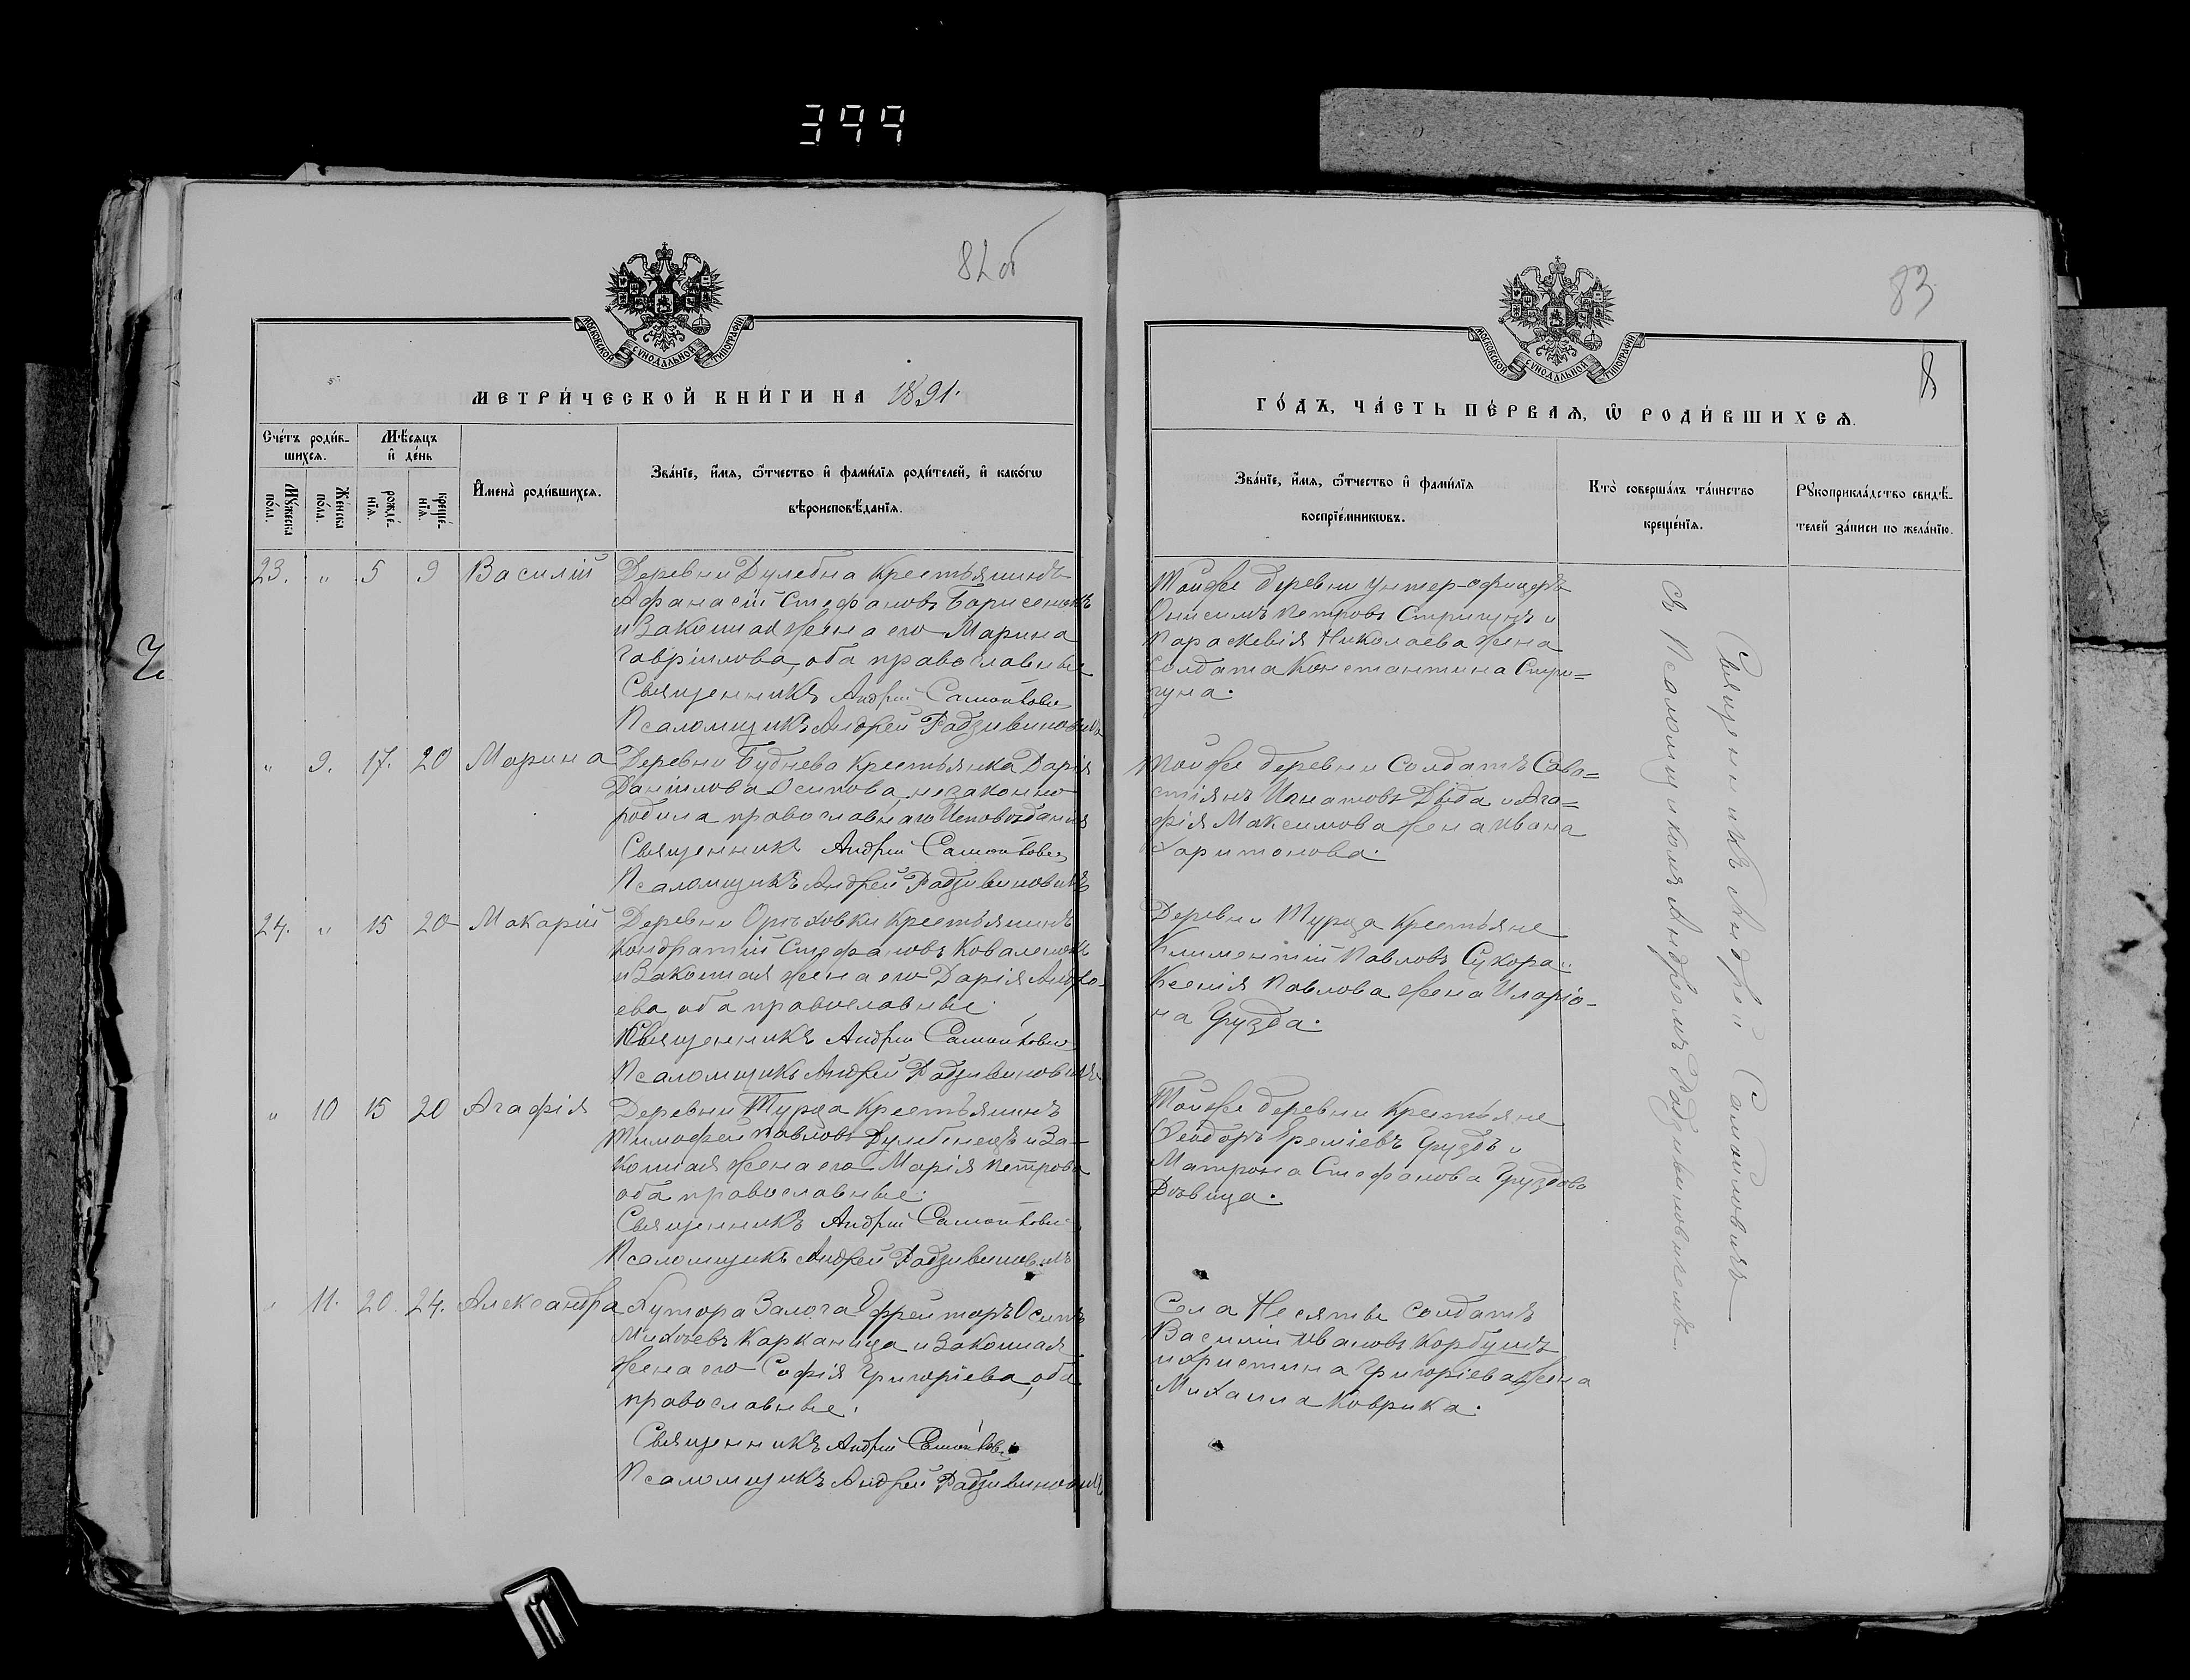 399
82об
МОСКОВСКОЙ СУНОДАЛЬНОЙ ТИПОГРАФІИ
МЕТРИ́ЧЕСКОЙ КНИ́ГИ НА 1891.
Сче́тъ роди́вшихсѧ.
Мѣ́сѧцъ и҆ де́нь
И҆мена̀ роди́вшихсѧ.
Зва́нїе, и҆́мѧ, ѻ҆́тчество и҆ фами́лїѧ роди́телей, и҆ како́гѡ
вѣроисповѣ́данїѧ.
Мꙋ́жеска по́ла.
Же́нска по́ла.
рожде́нїѧ.
креще́нїѧ.
23. " 5 9 Василій Деревни Дулебна Крестьянинъ
Афанасій Стефановъ Борисенокъ
и Законная жена его Марина
Гавріилова, оба православные
Священникъ Андрей Самойлович
Псаломщикъ Андрей Радзивиновичъ
" 9. 17. 20 Марина Деревни Буднева Крестьянка Дарія
Даніилова Осипова, незаконно
родила православнаго Исповѣданія
Священникъ Андрей Самойлович
Псаломщикъ Андрей Радзивиновичъ
24. " 15 20 Макарій Деревни Орѣховки Крестьянинъ
Кондратій Стефановъ Коваленокъ
и Законная жена его Дарія Андре-
ева, оба православные.
Священникъ Андрей Самойлович
Псаломщикъ Андрей Радзивиновичъ
" 10 15 20 Агафія Деревни Турца Крестьянинъ
Тимофей Павловъ Дулебенецъ и За-
конная жена его Марія Петрова
оба православные.
Священникъ Андрей Самойлович
Псаломщикъ Андрей Радзивиновичъ
" 11. 20. 24. Александра Хутора Залога Ефрейторъ Осипъ
Михѣевъ Карканица и Законная
жена его Софія Григоріева, оба
православные.
Священникъ Андрей Самойлович
Псаломщикъ Андрей Радзивиновичъ
83
8
МОСКОВСКОЙ СУНОДАЛЬНОЙ ТИПОГРАФІИ
ГО́ДЪ, ЧА́СТЬ ПЕ́РВАѦ, Ѽ РОДИ́ВШИХСѦ.
Зва́нїе, и҆́мѧ, ѻ҆́тчество и҆ фами́лїѧ
воспрїе́мникѡвъ.
Кто̀ соверша́лъ та́инство
креще́нїѧ.
Рꙋкоприкла́дство свидѣ́-
телей за́писи по жела́нїю.
Тойже деревни Унтер-офицеръ
Онисимъ Петровъ Стригунъ и
Параскевія Николаева жена
солдата Константина Стри=
гуна.
Тойже деревни Солдатъ Сава=
стіянъ Игнатовъ Дѣда и Ага=
фія Максимова жена Ивана
Харитонова.
Деревни Турца Крестьяне
Климентій Павловъ Сукора и
Ксенія Павлова жена Иларіо-
на Грузда.
Тойже деревни Крестьяне
Ѳеодоръ Ереміевъ Груздъ и
Матрона Стефанова Груздова
Дѣвица.
Села Несяты Солдатъ
Василій Ивановъ Корбушъ
и Христина Григоріева жена
Михаила Коврика.
Священникъ Андрей Самойловичъ
съ Псаломщикомъ Андреемъ Радзивиновичемъ